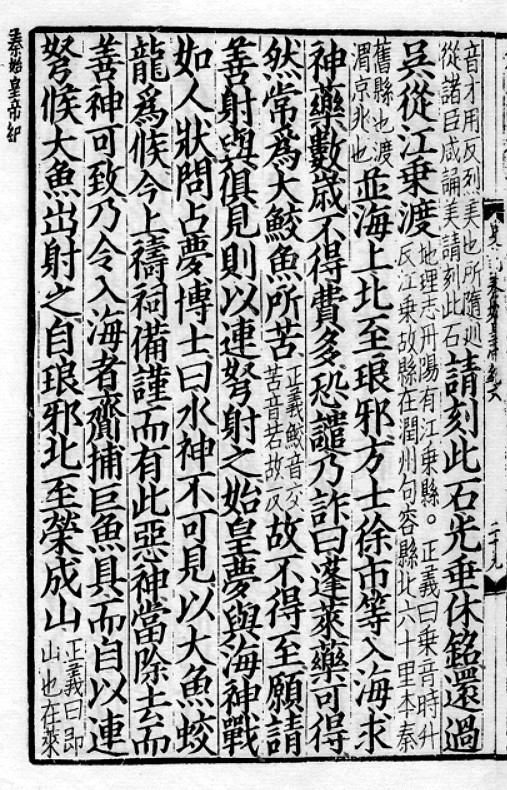 音才用反列美也所隨巡
從諸臣咸誦美請刻此石請刻此石光垂休銘還過
吳從江乗渡地理志丹陽有江乗縣。正義曰乗音時升
反江乗故縣在潤州句容縣北六十里本秦
舊縣也渡
渭京兆也並海上北至琅邪方士徐市等入海求
神藥數歲不得費多恐譴乃詐曰蓬萊藥可得
然常爲大鮫魚所苦正義鮫音交
苦音若故反故不得至願請
善射與俱見則以連弩射之始皇夢與海神戰
如人狀問占夢博士曰水神不可見以大魚蛟
龍爲候今上禱祠備謹而有此惡神當除去而
善神可致乃令入海者齎捕巨魚具而自以連
弩候大魚出射之自琅邪北至榮成山正義曰即
山也在萊
秦始皇帝紀
二十九